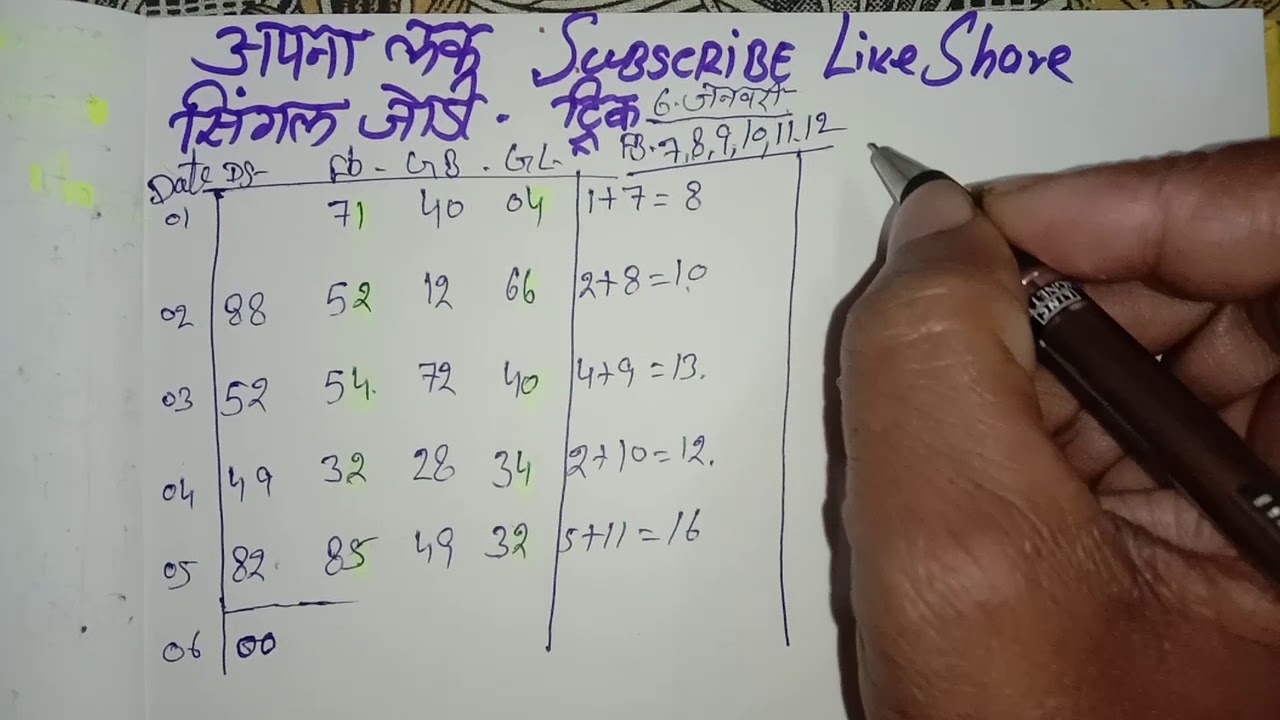 अपना लक SUBSCRIBE Like Share
सिंगल जोडी. ट्रिक 6. जेनवरी
FB. 7, 8, 9, 10, 11, 12
Date DS Fb - GB . GL.
01 71 40 04 1+7=8
02 88 52 12 66 2+8=10
03 52 54. 72 40 4+9=13.
04 49 32 28 34 2+10=12.
05 82. 85 49 32 5+11=16
06 00